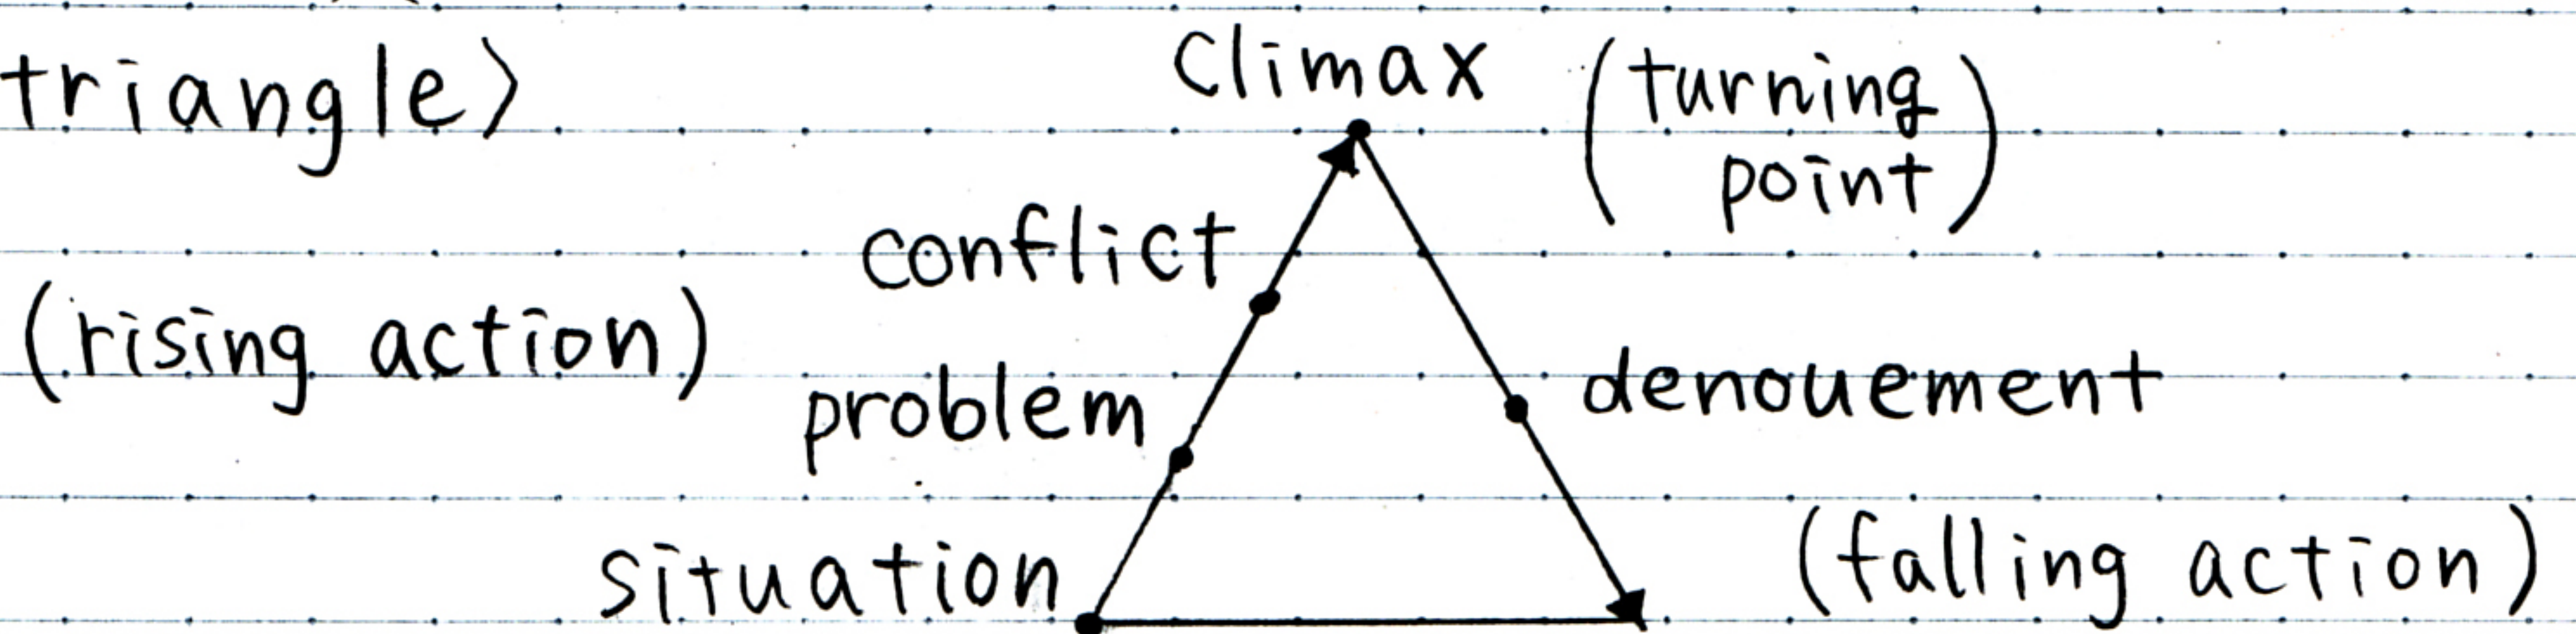 triangle〉
climax
(turning
point)
conflict
(rising action)
problem
denouement
situation
(falling action)